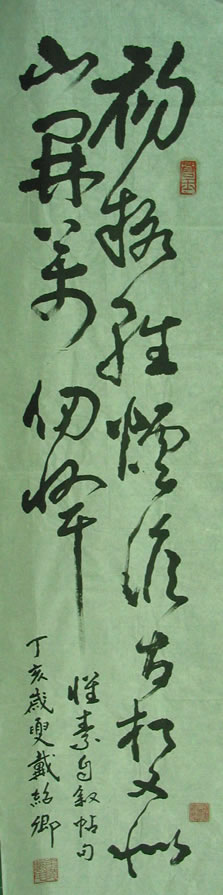 初疑輕煙澹古松又似
山開萬仞峰
懷素自叙帖句
丁亥歲夏戴紹卿